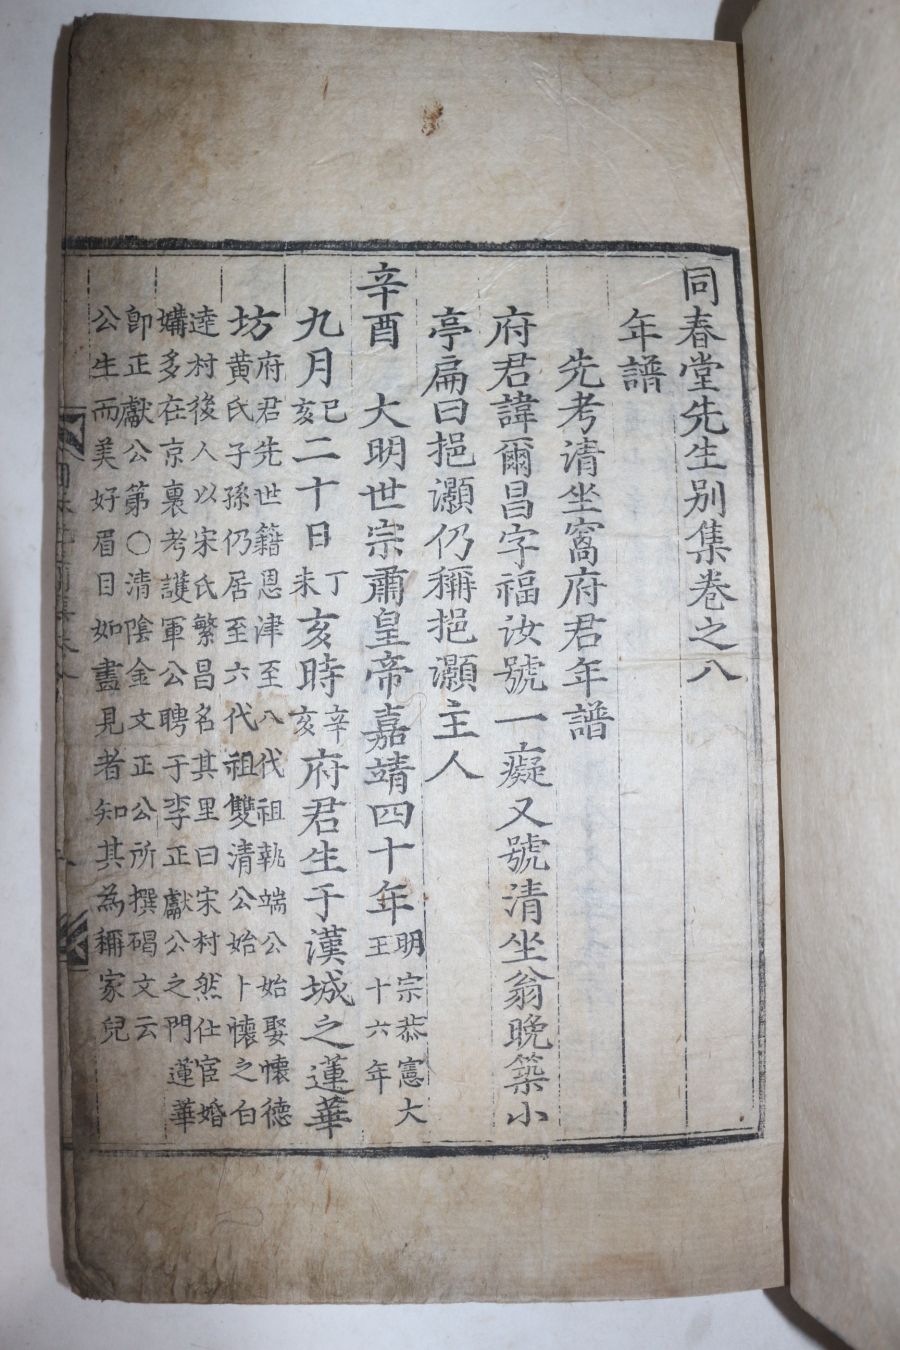 同春堂先生別集卷之八
年譜
先考清坐窩府君年譜
府君諱爾昌字福汝號一癡又號清坐翁晩築小
亭扁曰挹灝仍稱挹灝主人
辛酉 大明世宗肅皇帝嘉靖四十年明宗恭憲大王十六年
九月己亥二十日丁未亥時辛亥府君生于漢城之蓮華
坊府君先世籍恩津至八代祖執端公始娶懷德
黄氏子孫仍居至六代祖雙清公始卜懷之白
逹村後人以宋氏繁昌名其里曰宋村然仕宦婚
媾多在京裏考護軍公聘于李正獻公之門蓮華
卽正獻公第○清陰金文正公所撰碣文云
公生而美好眉目如畵見者知其為稱家兒